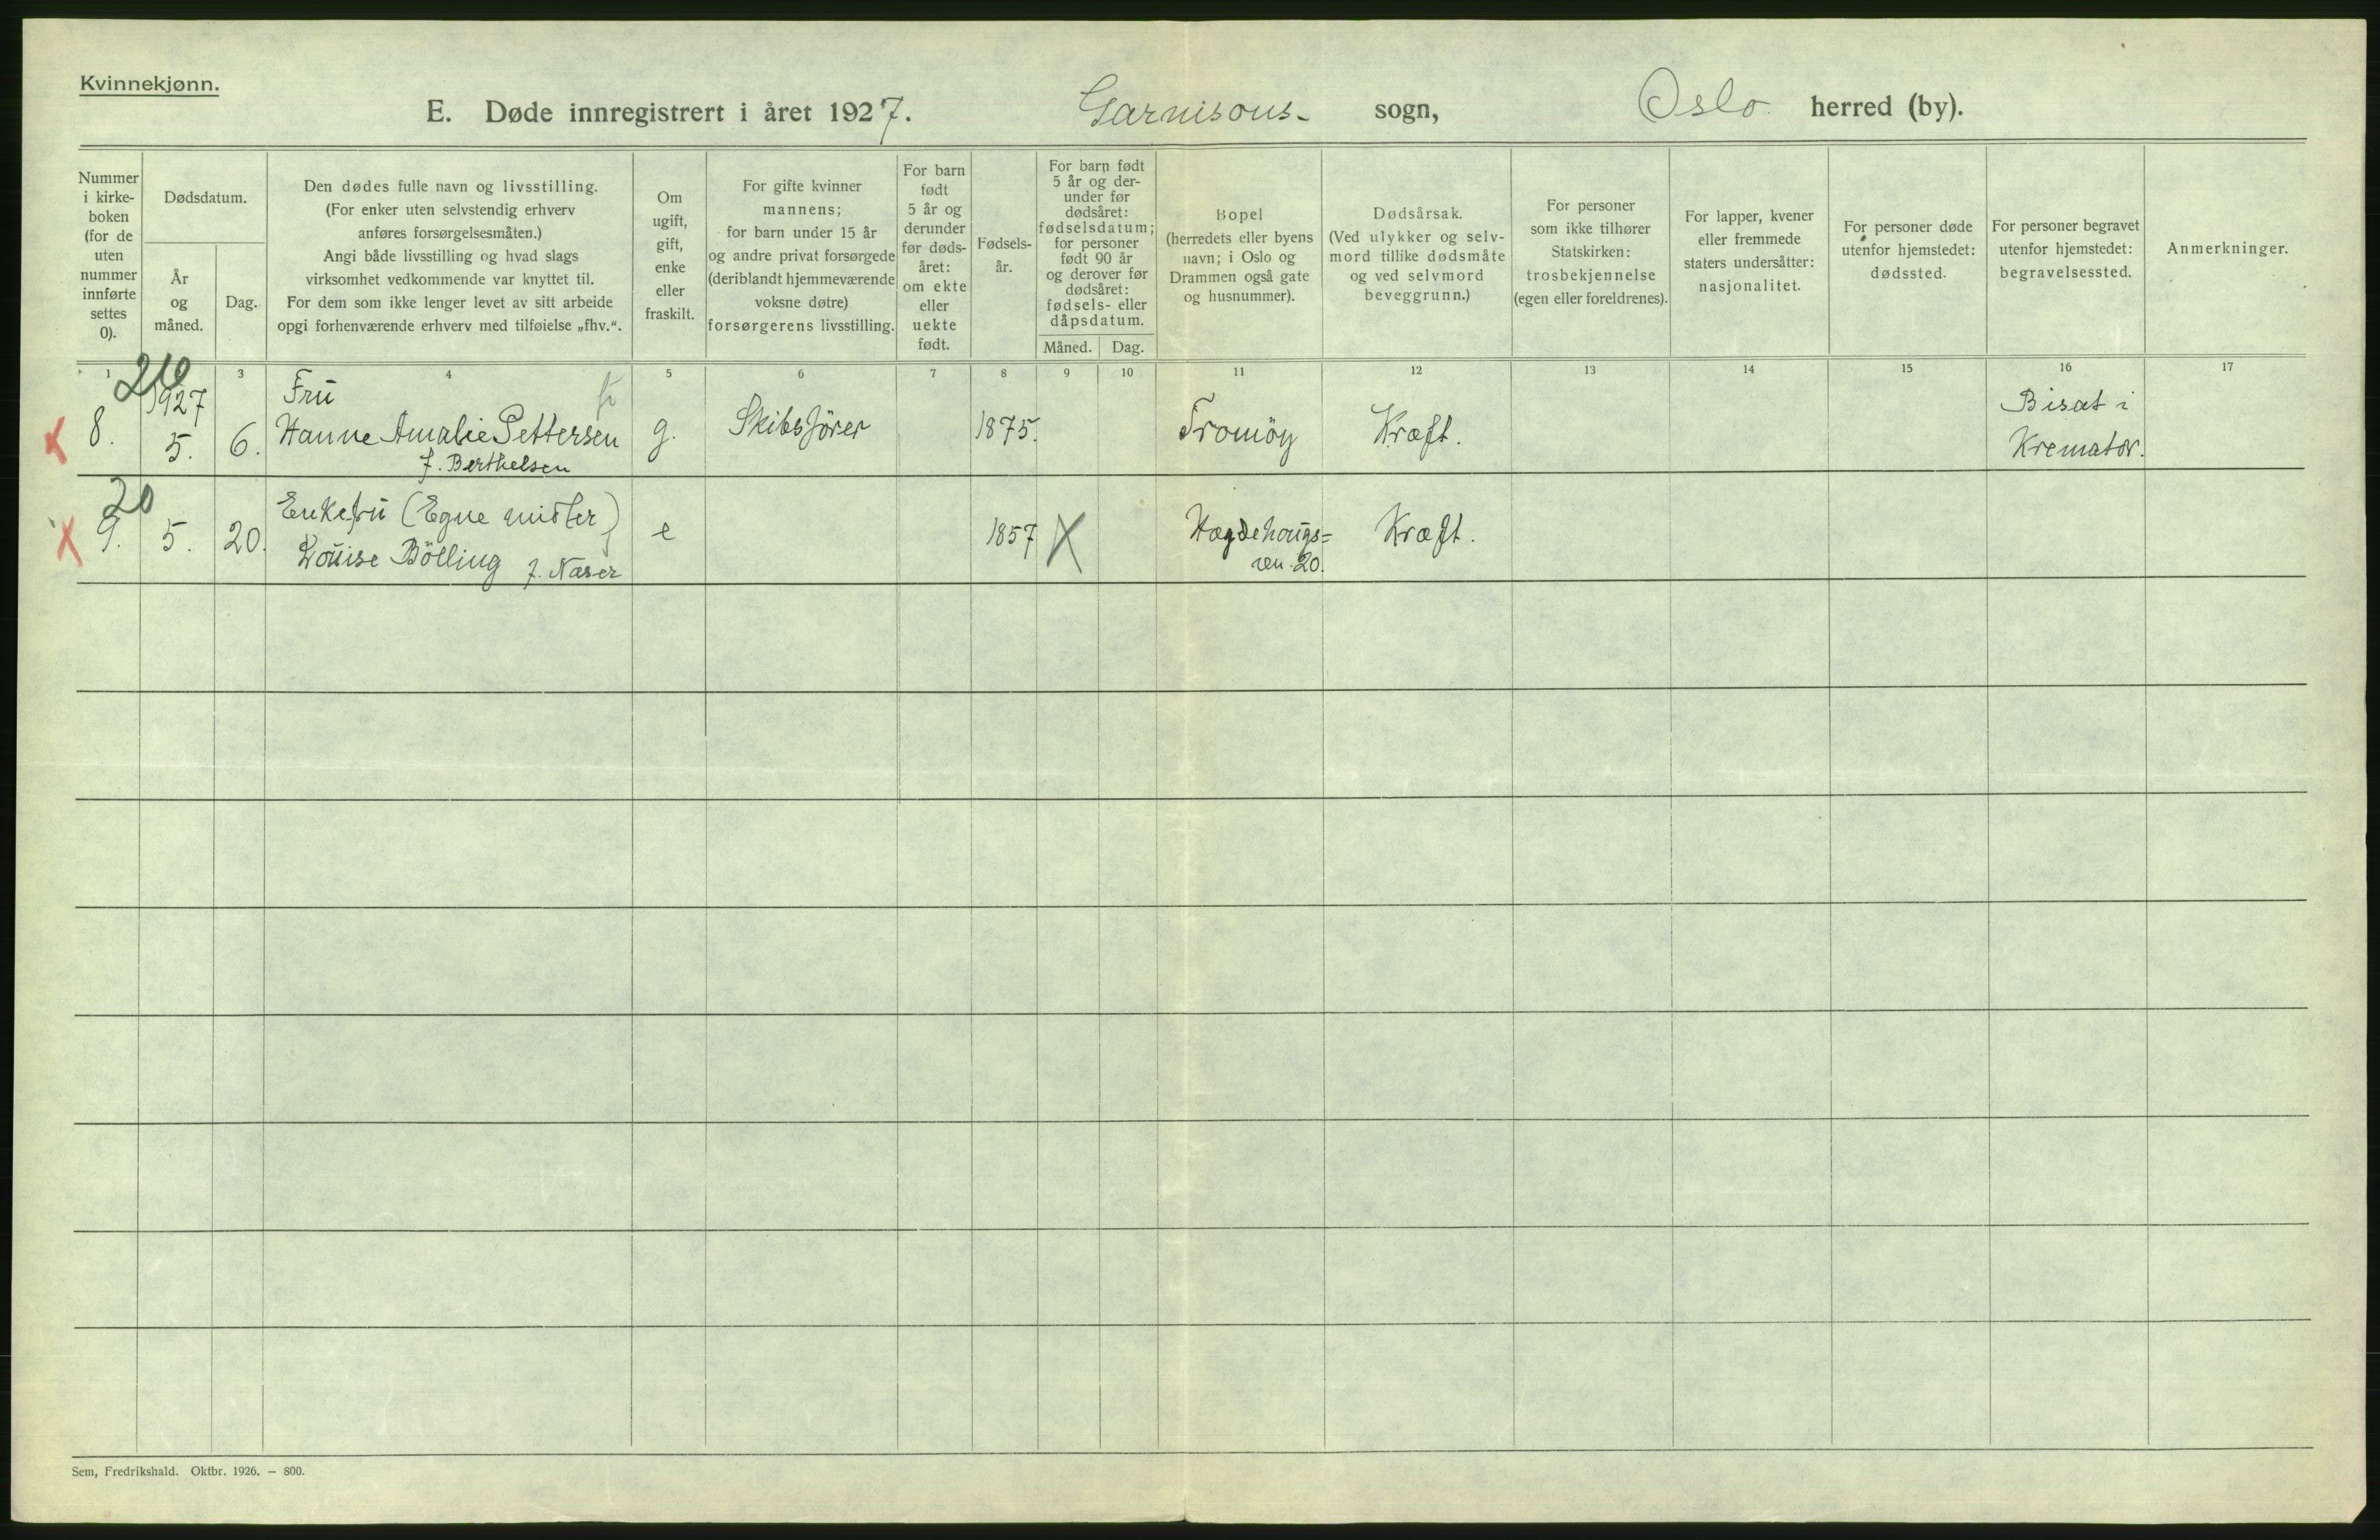 Kvinnekjønn.
E. Døde innregistrert i året 1927. Garnisons- sogn, Oslo herred (by).
Nummer
i kirke-
boken
(for de
uten
nummer
innførte
settes
0).
Dødsdatum.
År
og
måned.
Dag.
Den dødes fulle navn og livsstilling.
(For enker uten selvstendig erhverv
anføres forsørgelsesmåten.)
Angi både livsstilling og hvad slags
virksomhet vedkommende var knyttet til.
For dem som ikke lenger levet av sitt arbeide
opgi forhenværende erhverv med tilføielse „fhv.“.
Om
ugift,
gift,
enke
eller
fraskilt.
For gifte kvinner
mannens;
for barn under 15 år
og andre privat forsørgede
(deriblandt hjemmeværende
voksne døtre)
forsørgerens livsstilling.
For barn
født
5 år og
derunder
før døds-
året:
om ekte
eller
uekte
født.
Fødsels-
år.
For barn født
5 år og der-
under før
dødsåret:
fødselsdatum;
for personer
født 90 år
og derover før
dødsåret:
fødsels- eller
dåpsdatum.
Måned. Dag.
Bopel
(herredets eller byens
navn; i Oslo og
Drammen også gate
og husnummer).
Dødsårsak.
(Ved ulykker og selv-
mord tillike dødsmåte
og ved selvmord
beveggrunn.)
For personer
som ikke tilhører
Statskirken:
trosbekjennelse
(egen eller foreldrenes).
For lapper, kvener
eller fremmede
staters undersåtter:
nasjonalitet.
For personer døde
utenfor hjemstedet:
dødssted.
For personer begravet
utenfor hjemstedet:
begravelsessted.
Anmerkninger.
1 3 4 5 6 7 8 9 10 11 12 13 14 15 16 17
1927 Fru Bisat i
8. 5. 6. Hanne Amalie Pettersen g. Skibsfører 1875. Tromøy Kræft. Kremator.
f. Berthelsen
20
Enkefru (Egne midler)
9. 5. 20. Louise Bölling f. Naser e 1857 X Hægdehaugs= Kræft.
ven. 20.
Sem, Fredrikshald. Oktbr. 1926. — 800.